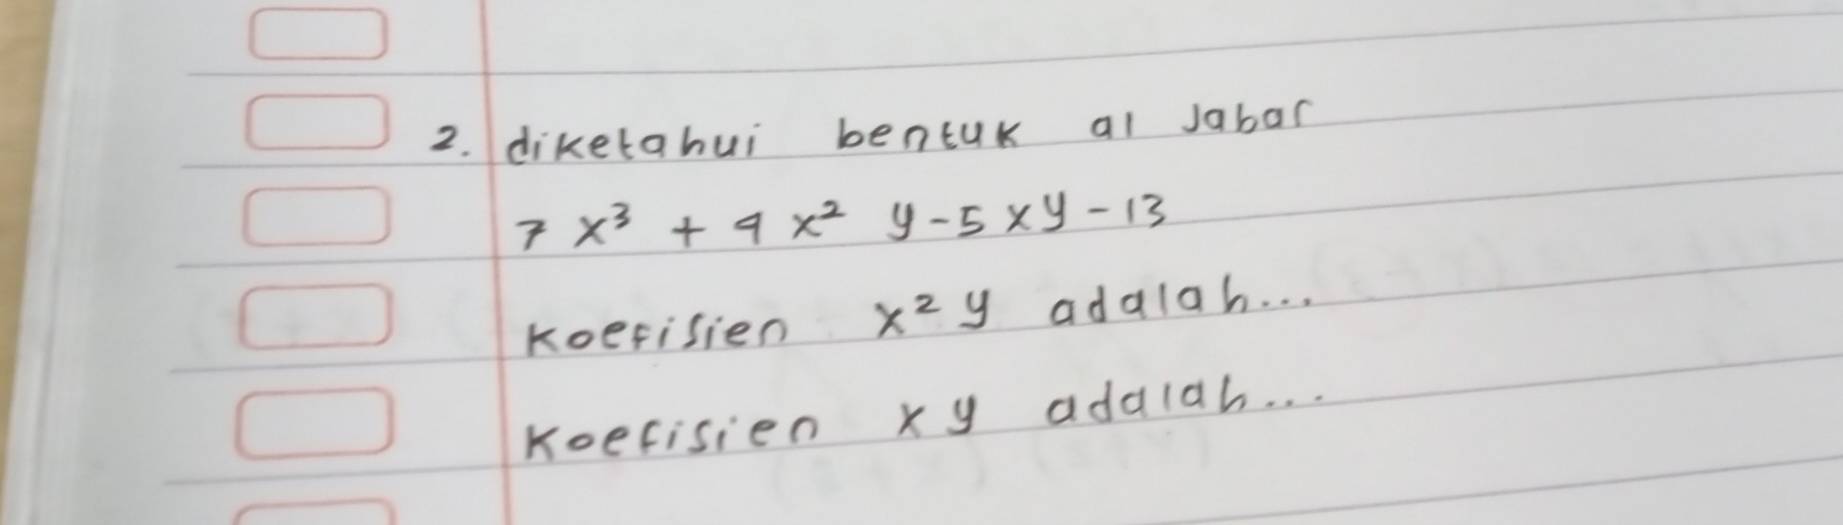 2. diketahui bentuk al Jabar
7 x³ + 9 x² y - 5 x y - 13
Koefisien x² y adalah...
Koefisien x y adalah...